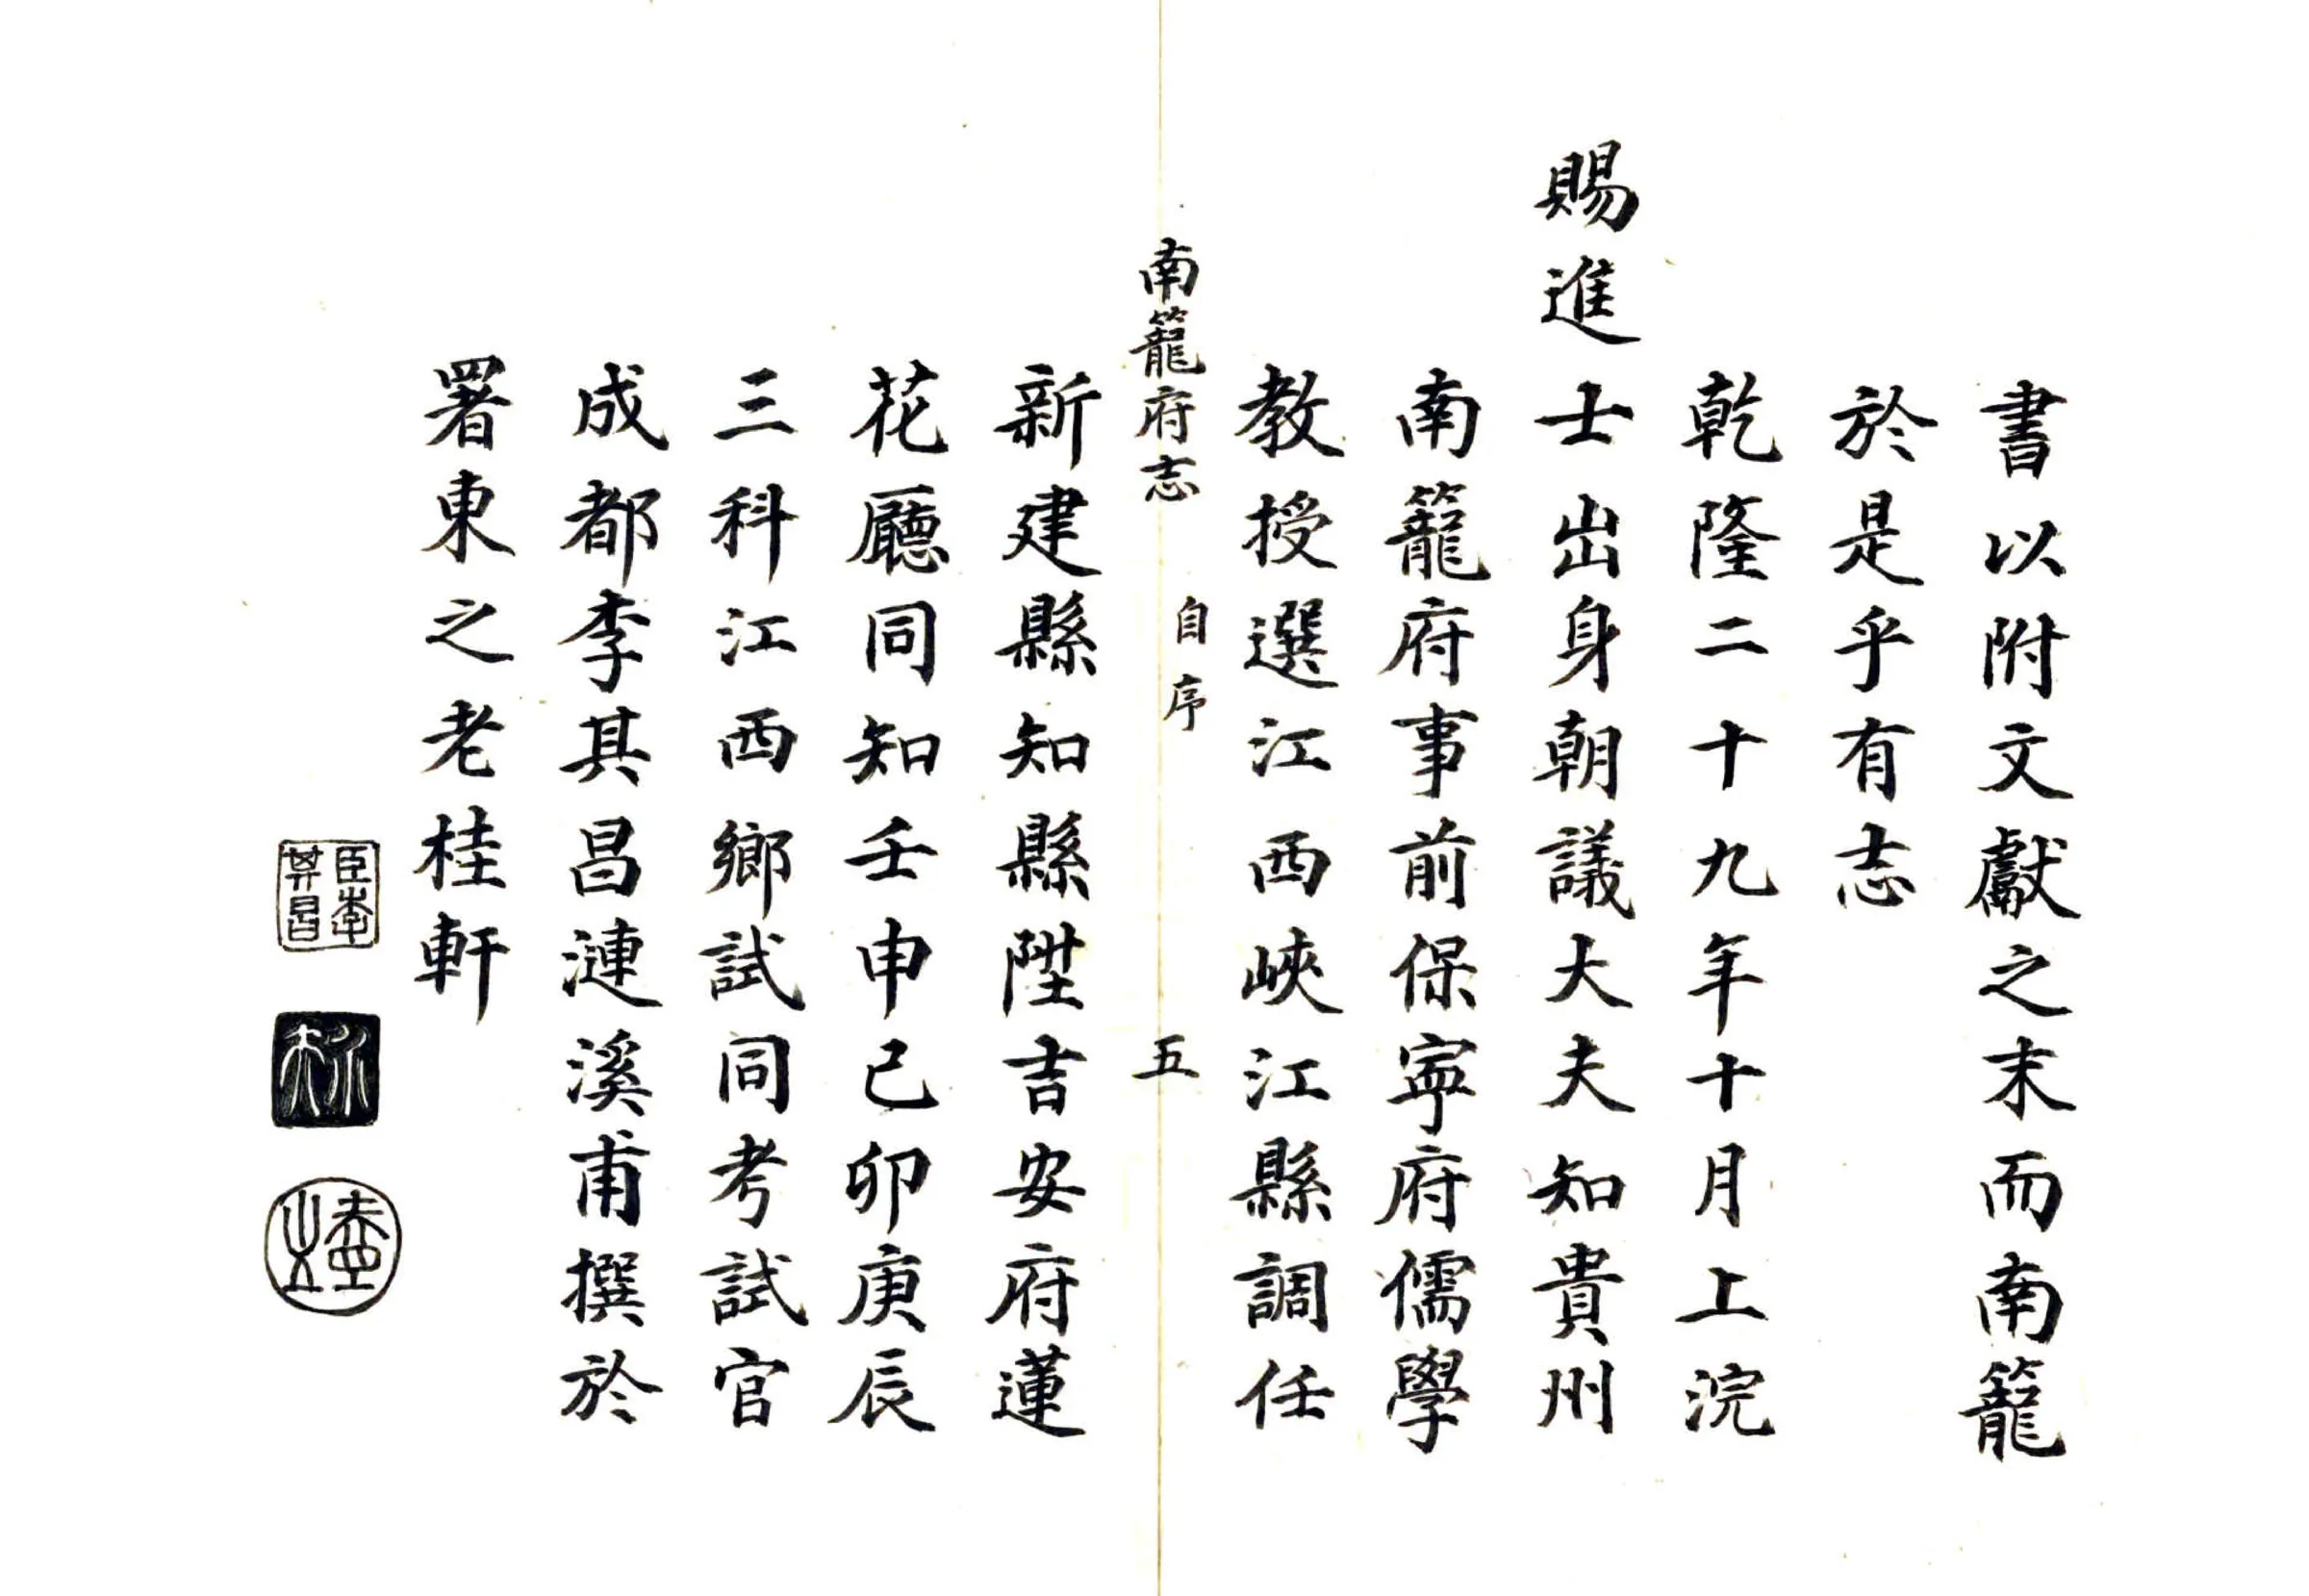 書以附文獻之末而南籠
於是乎有志
乾隆二十九年十月上浣
賜進士出身朝議大夫知貴州
南籠府事前保寧府儒學
教授選江西峽江縣調任
南籠府志 自序 五
新建縣知縣陞吉安府蓮
花廳同知壬申己卯庚辰
三科江西鄉試同考試官
成都李其昌漣溪甫撰於
署東之老桂軒
臣李其昌